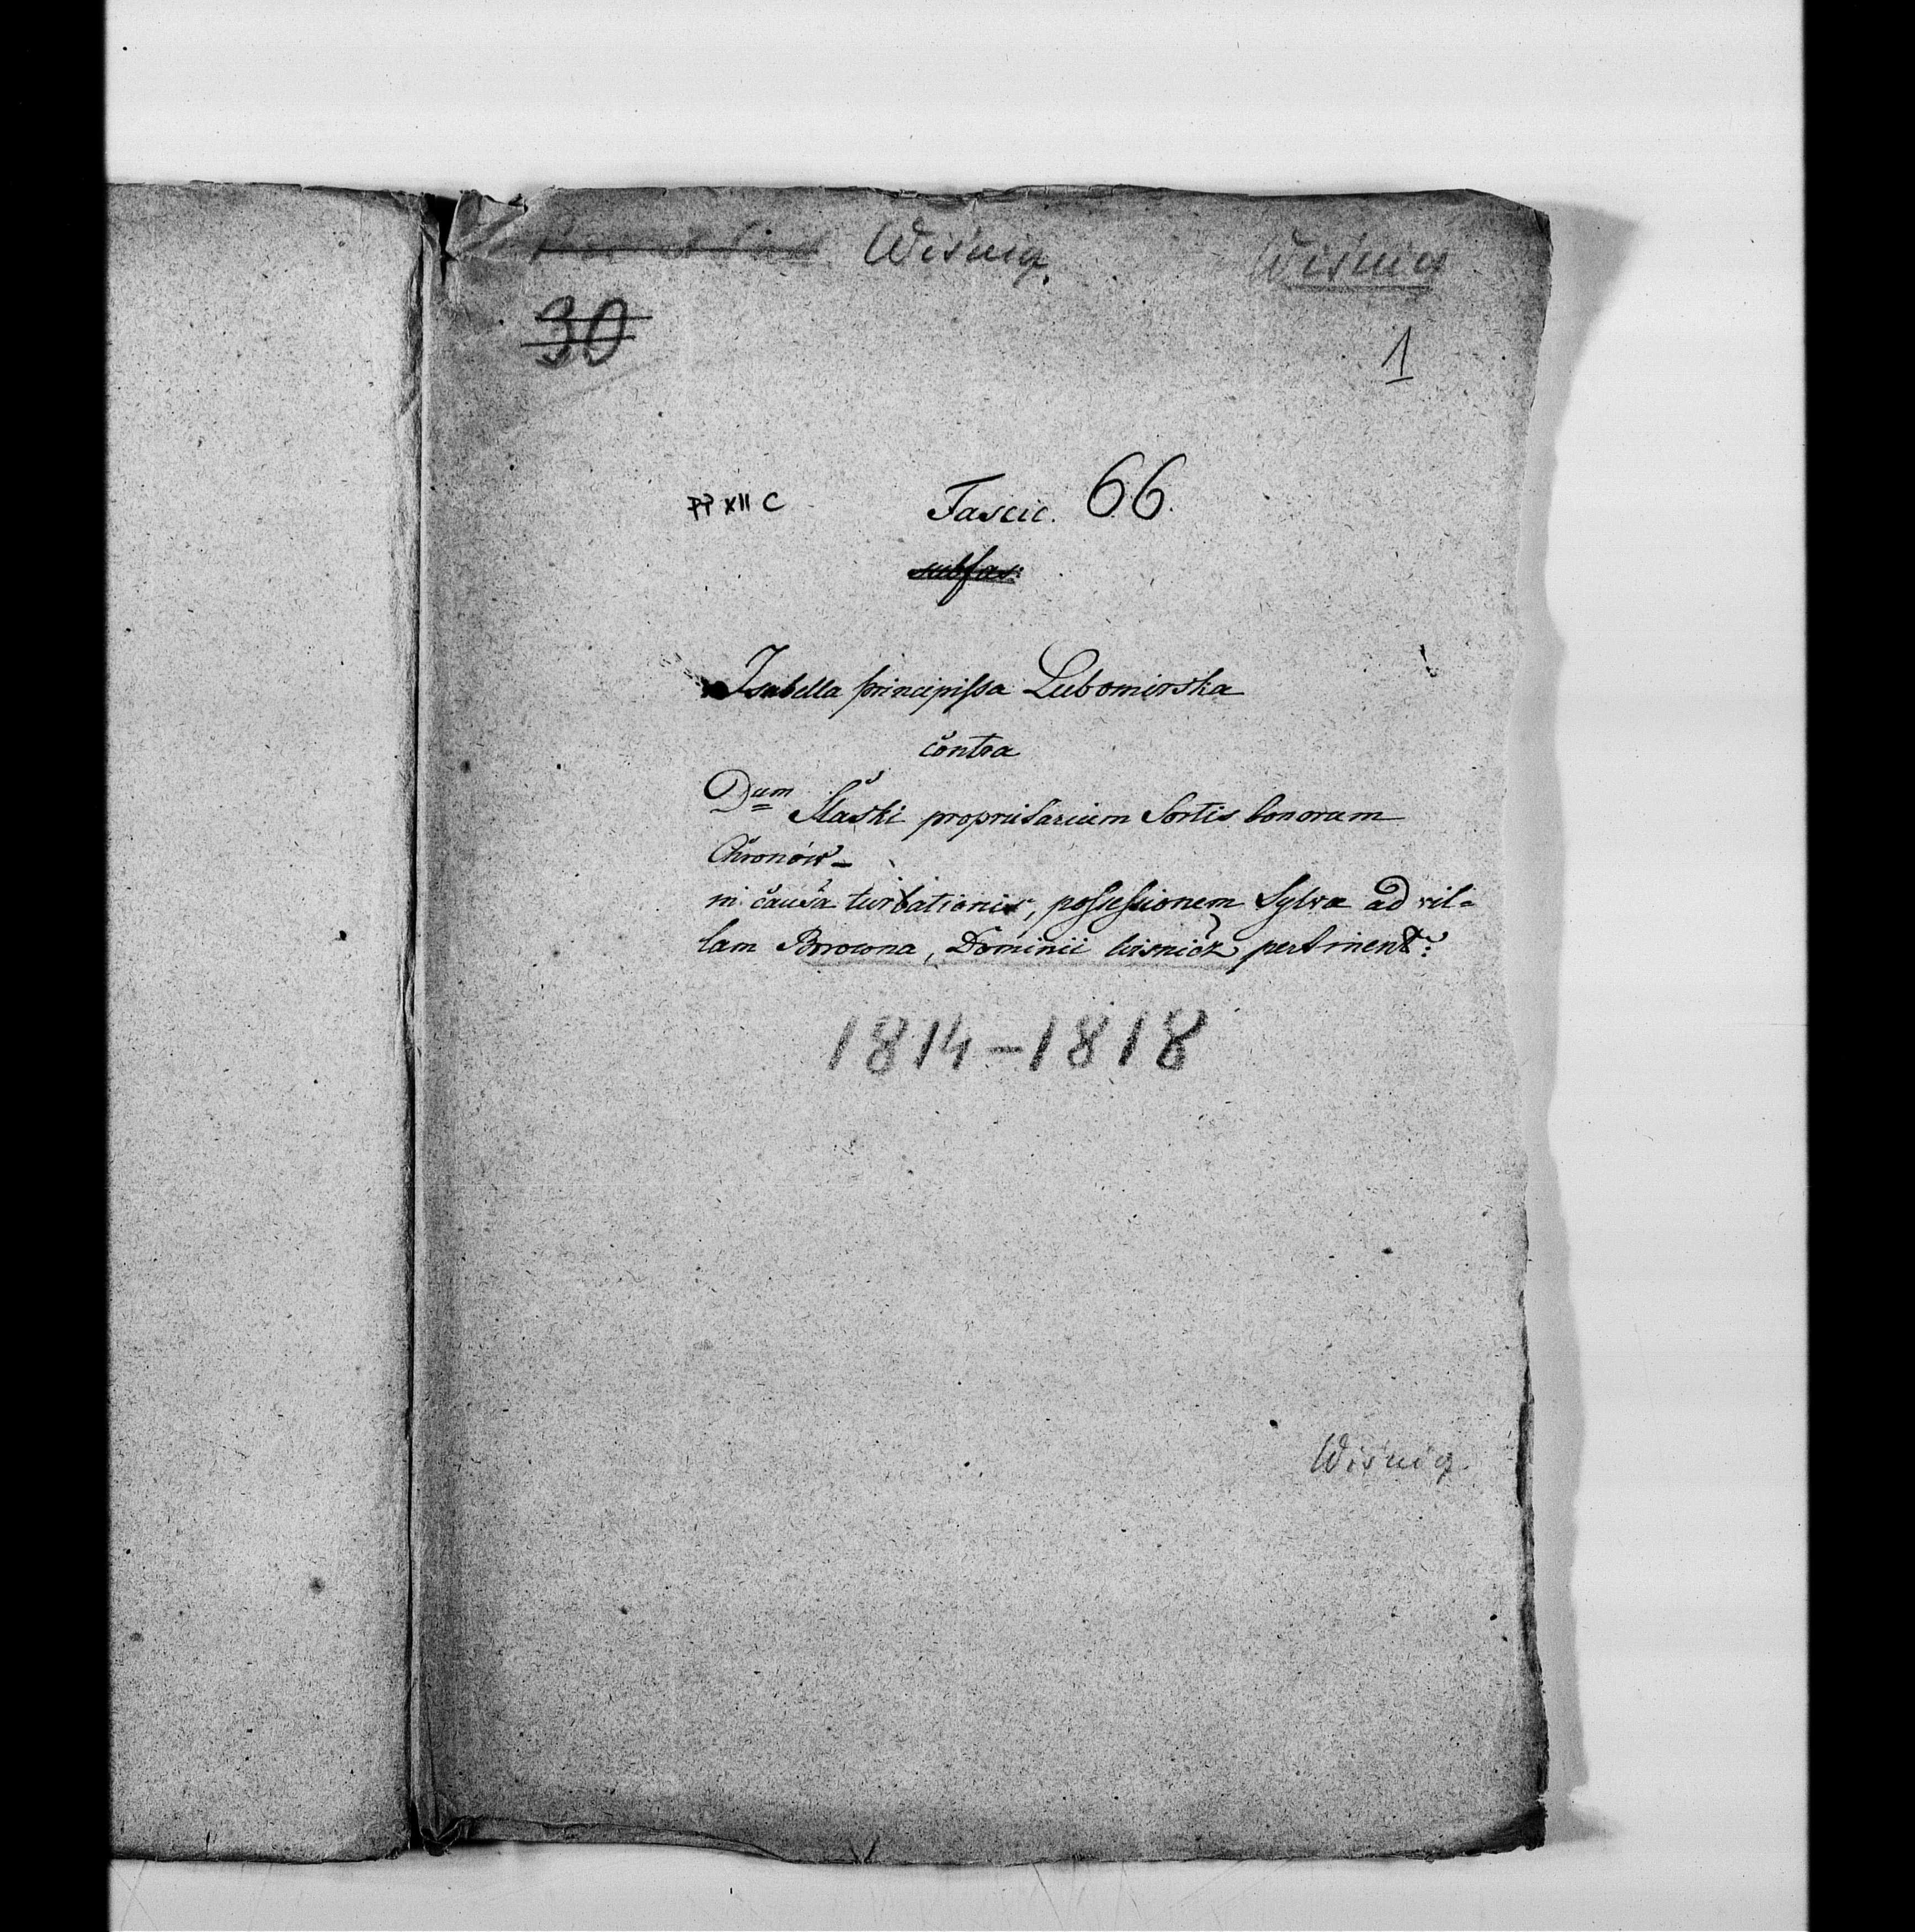 Wiśnicz
Wiśnicz
30
1
PP XII C
Fascic. 66.
subfas:
Isabella principissa Lubomirska
contra
Dum Slaski proprietarium Sortis bonorum
Chronów –
in causa turbationis, possessionem Sylvæ ad vil-
lam Borowna, Dominii Wisnicz pertinent:
1814-1818
Wiśnicz